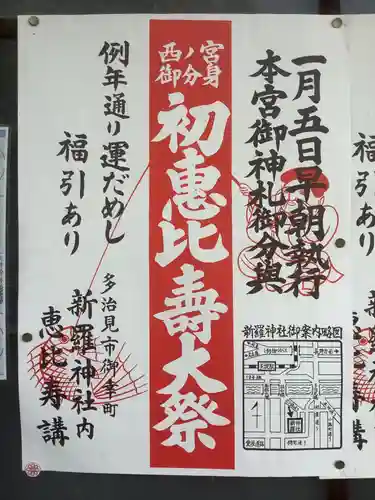 一月五日早朝執行
本宮御神札御分與
西ノ宮
御分身
初恵比壽大祭
例年通り運だめし
福引あり
多治見市御幸町
新羅神社内
恵比寿講
新羅神社御案内略図
福引あり